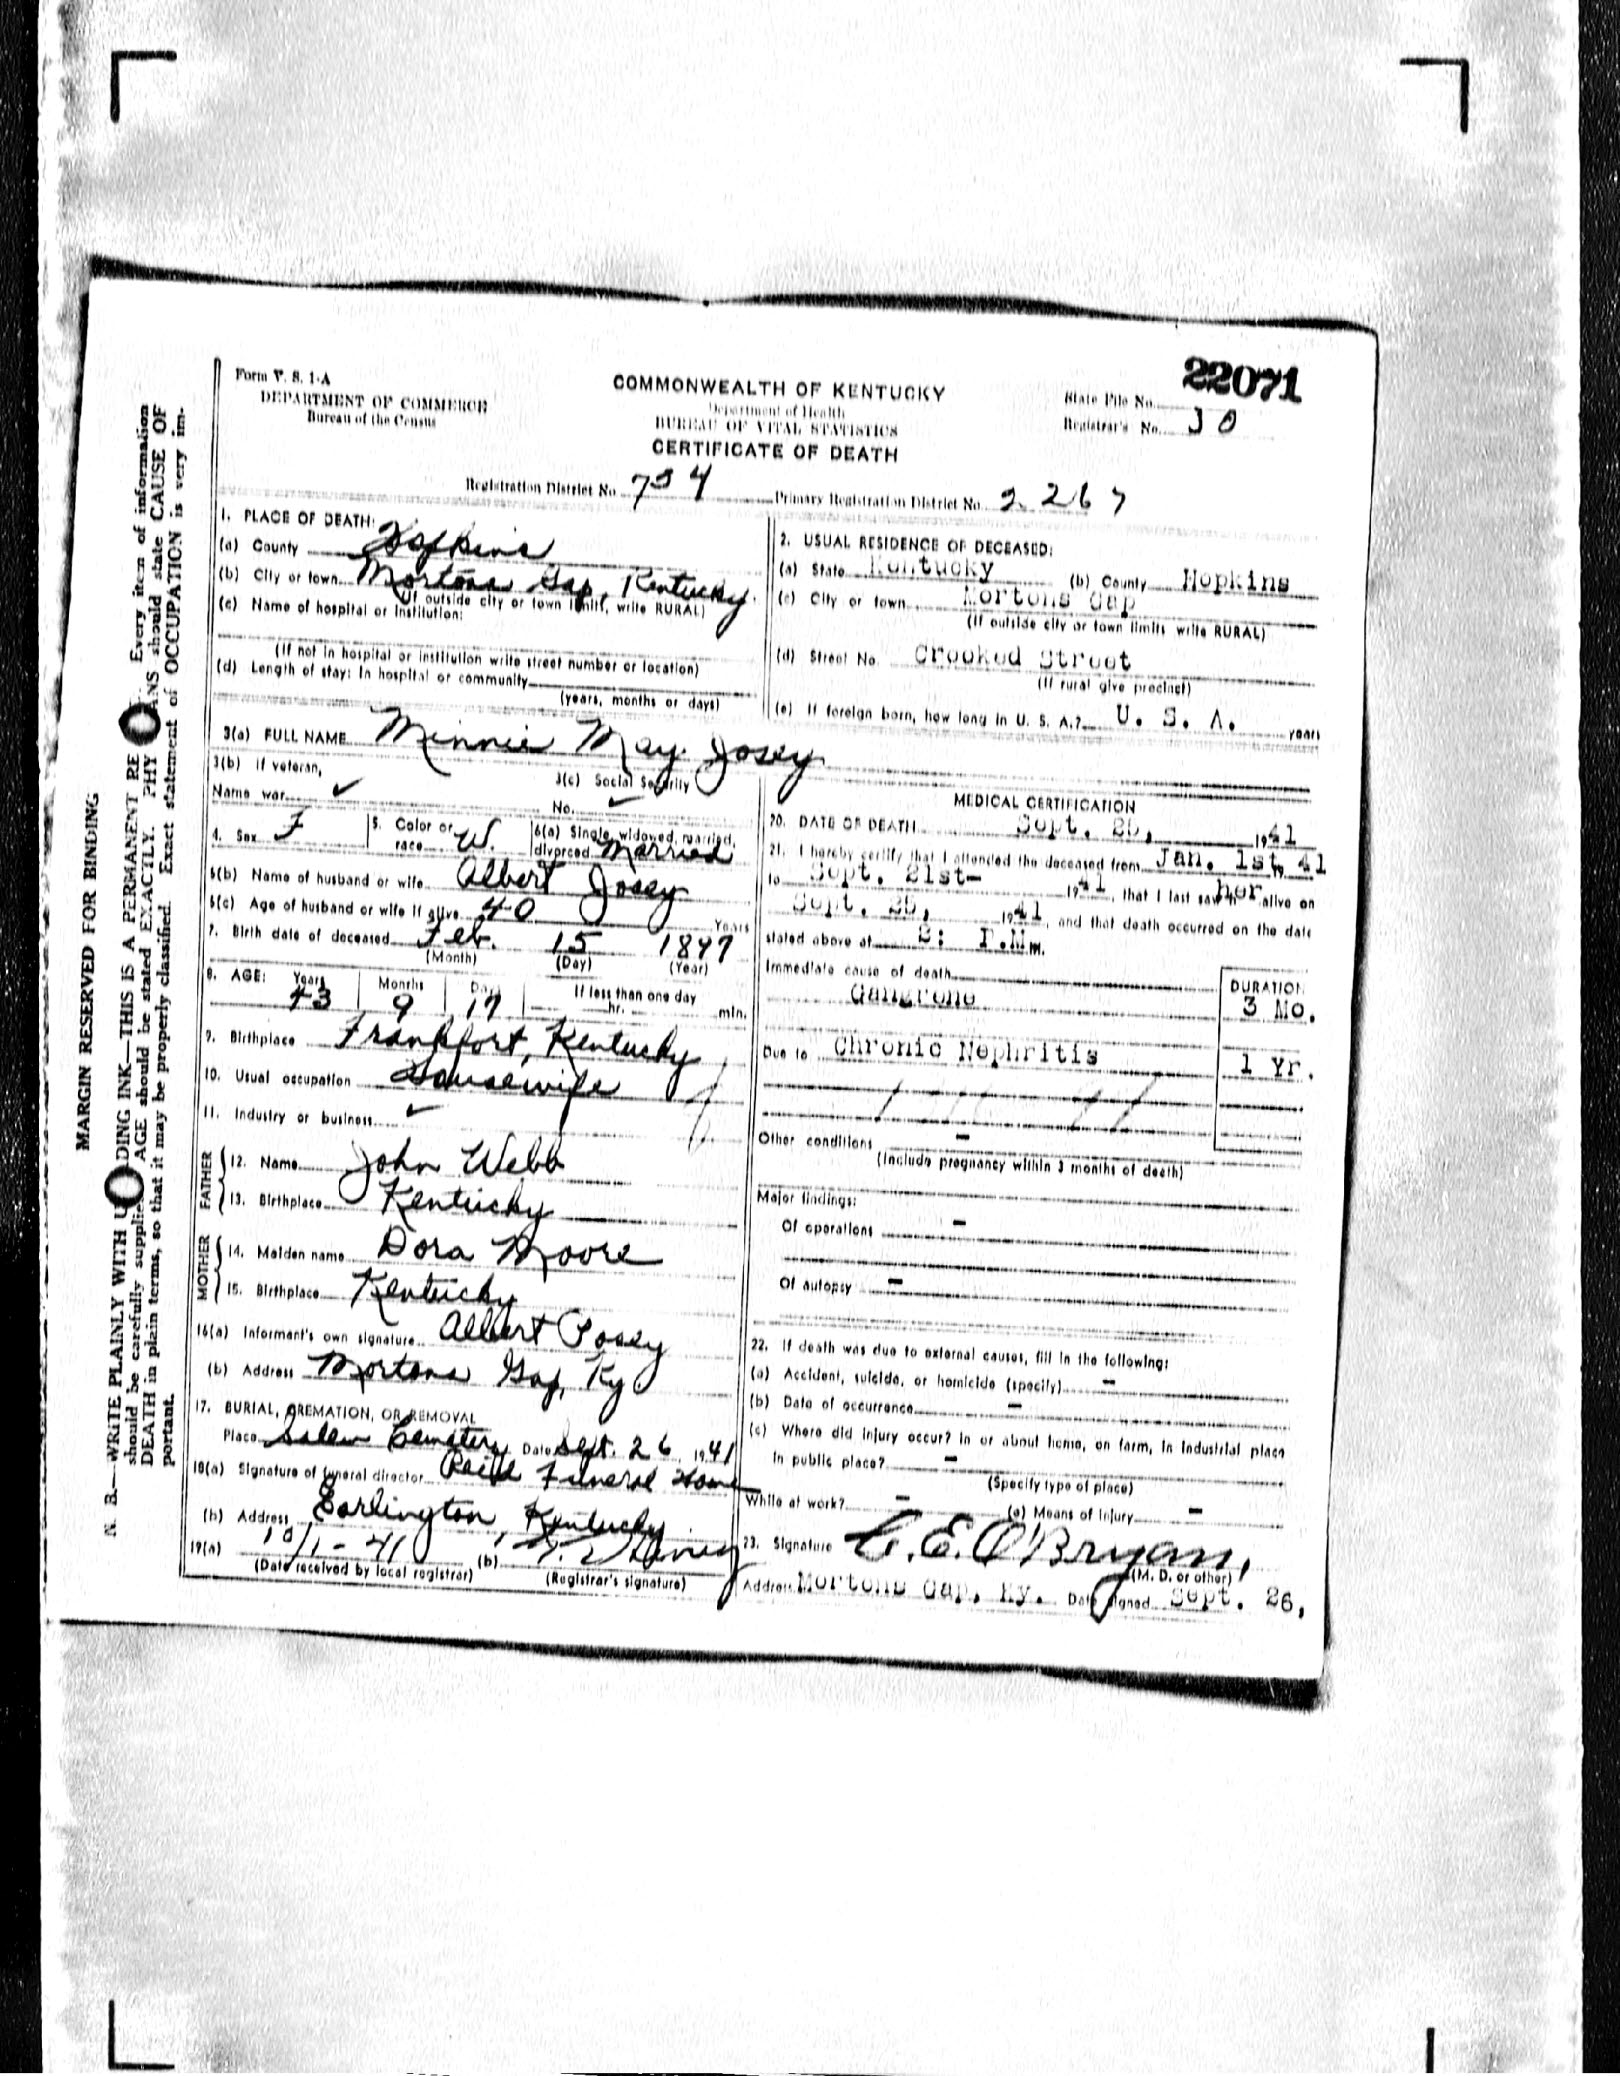 22071
Form V. S. 1-A
DEPARTMENT OF COMMERCE
Bureau of the Census
COMMONWEALTH OF KENTUCKY
Department of Health
BUREAU OF VITAL STATISTICS
CERTIFICATE OF DEATH
State File No.
Registrar's No. 30
Registration District No. 734 Primary Registration District No. 2267
1. PLACE OF DEATH:
(a) County Hopkins
(b) City or town Mortons Gap, Kentucky.
(If outside city or town limits, write RURAL)
(c) Name of hospital or institution:
(If not in hospital or institution write street number or location)
(d) Length of stay: In hospital or community
(years, months or days)
2. USUAL RESIDENCE OF DECEASED:
(a) State Kentucky (b) County Hopkins
(c) City or town Mortons Gap
(If outside city or town limits write RURAL)
(d) Street No. Crooked Street
(If rural give precinct)
(e) If foreign born, how long in U. S. A.? U. S. A. years
3(a) FULL NAME Minnie May Josey
3(b) If veteran,
Name war ✓
3(c) Social Security
No. ✓
4. Sex F
5. Color or race W.
6(a) Single, widowed, married,
divorced Married
6(b) Name of husband or wife Albert Josey
6(c) Age of husband or wife if alive 40 Years
7. Birth date of deceased Feb. 15 1897
(Month) (Day) (Year)
8. AGE: Years Months Days If less than one day
43 9 17 hr. min.
9. Birthplace Frankfort, Kentucky
10. Usual occupation Housewife
11. Industry or business ✓
FATHER
12. Name John Webb
13. Birthplace Kentucky
MOTHER
14. Maiden name Dora Moore
15. Birthplace Kentucky
16(a) Informant's own signature Albert Posey
(b) Address Mortons Gap, Ky
17. BURIAL, CREMATION, OR REMOVAL
Place Salem Cemetery Date Sept. 26, 1941
18(a) Signature of funeral director Reid Funeral Home
(b) Address Earlington, Kentucky
19(a)
(Date received by local registrar)
(b)
(Registrar's signature)
MEDICAL CERTIFICATION
20. DATE OF DEATH Sept. 25, 1941
21. I hereby certify that I attended the deceased from Jan. 1st, 19 41
to Sept. 21st- 1941, that I last saw h her alive on
Sept. 25, 1941, and that death occurred on the date
stated above at P.M m.
Immediate cause of death
Gangrene
DURATION
3 Mo.
Due to Chronic Nephritis 1 Yr.
Other conditions -
(Include pregnancy within 3 months of death)
Major findings:
Of operations -
Of autopsy -
22. If death was due to external causes, fill in the following:
(a) Accident, suicide, or homicide (specify) -
(b) Date of occurrence -
(c) Where did injury occur? In or about home, on farm, in industrial place
in public place? -
(Specify type of place)
While at work? - (e) Means of injury -
23. Signature C. E. O'Bryan,
(M. D. or other)
Address Mortons Gap, Ky. Date signed Sept. 26,
MARGIN RESERVED FOR BINDING
N. B.—WRITE PLAINLY WITH UNFADING INK—THIS IS A PERMANENT RE Every item of information
should be carefully supplied AGE should be stated EXACTLY. PHY ANS should state CAUSE OF
DEATH in plain terms, so that it may be properly classified. Exact statement of OCCUPATION is very im-
portant.